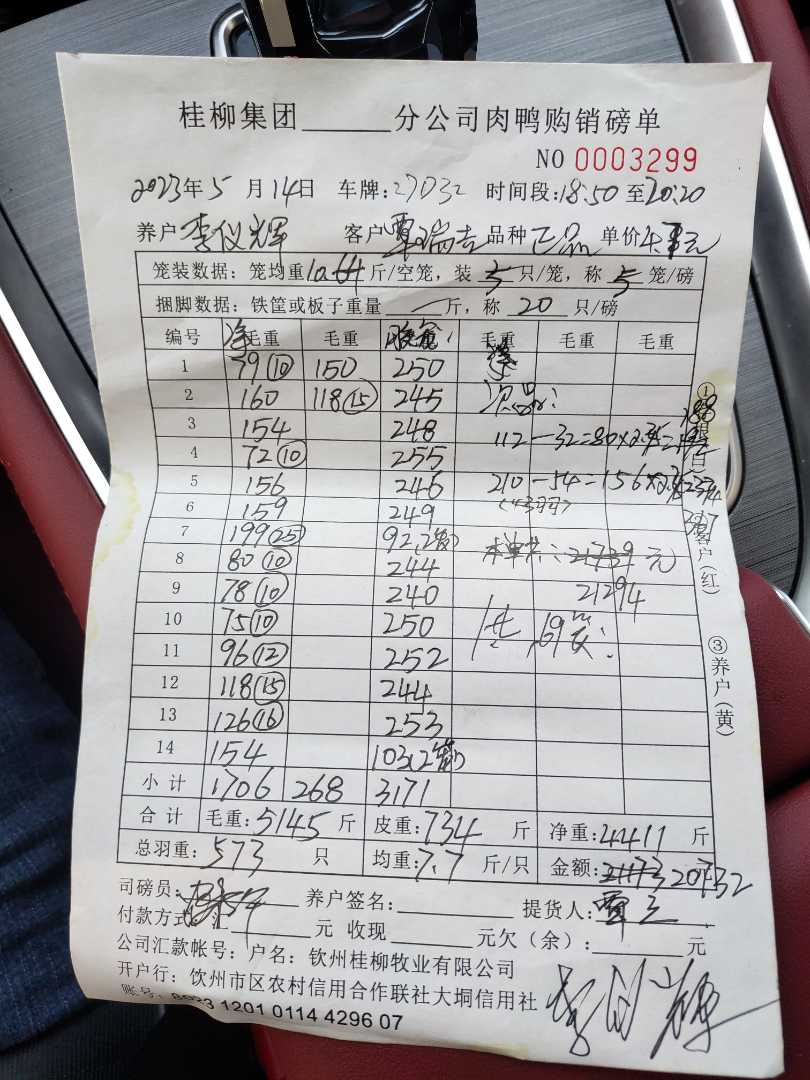 桂柳集团______分公司肉鸭购销磅单
NO 0003299
2023年5月14日 车牌:27032 时间段:18:50至20:20
养户 李仪辉 客户 覃瑞吉 品种 正品 单价
笼装数据：笼均重 斤/空笼，装 5 只/笼，称 5 笼/磅
捆脚数据：铁筐或板子重量 — 斤，称 20 只/磅
编号 净毛重 毛重 毛重 毛重 毛重
1 79⑩ 150 250
2 160 118⑮ 245 次品:
3 154 248 112-32=80×2.35=188
4 72⑩ 255
5 156 246 210-54=156×2.35
6 159 249
7 199㉕ 92(2笼) 本单共: 21739元
8 80⑩ 244
9 78⑩ 240 21294
10 75⑩ 250 共69笼:
11 96⑫ 252
12 118⑮ 244
13 126⑯ 253
14 154 103(2笼)
小计 1706 268 3171
合计 毛重:5145斤 皮重:734斤 净重:4411斤
总羽重: 573 只 均重:7.7斤/只 金额: 20732
司磅员: 养户签名: 提货人:
付款方式 元 收现 元欠（余）: 元
公司汇款帐号：户名：钦州桂柳牧业有限公司
开户行：饮州市区农村信用合作联社大垌信用社
账号: 8033 1201 0114 4296 07
客户（红）
③养户（黄）